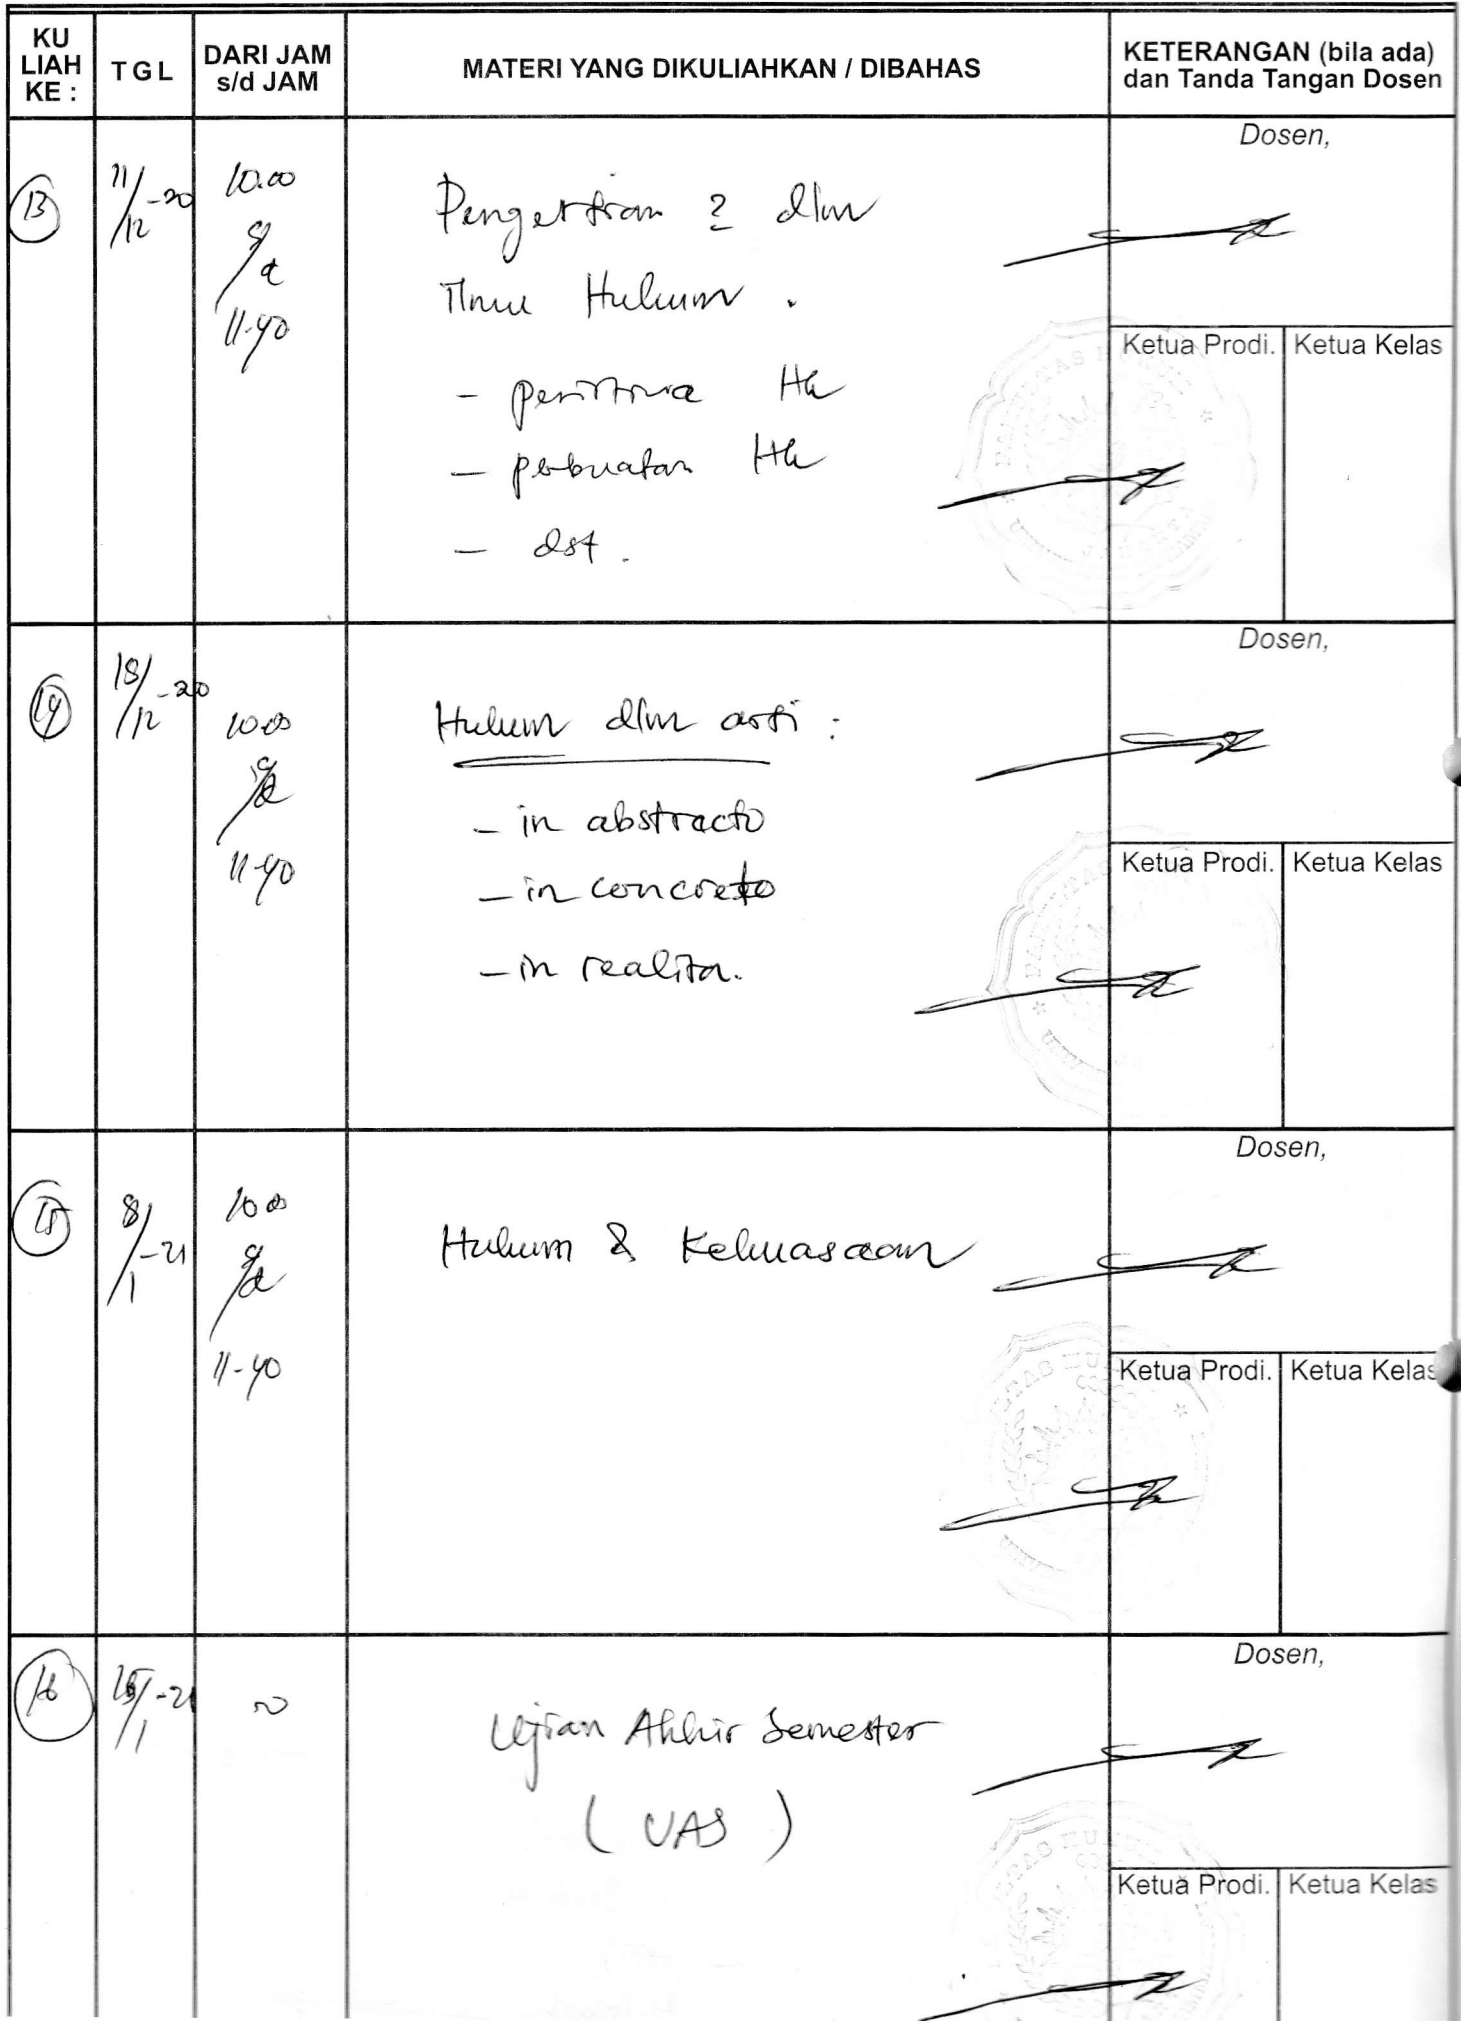 KU
LIAH
KE :
TGL
DARI JAM
s/d JAM
MATERI YANG DIKULIAHKAN / DIBAHAS
KETERANGAN (bila ada)
dan Tanda Tangan Dosen
13
11/12-20
10.00
s/d
11-40
Pengertian 2 dlm
Ilmu Hukum .
- peristiwa Hk
- perbuatan Hk
- dst .
Dosen,
Ketua Prodi.
Ketua Kelas
14
18/12-20
10.00
s/d
11-40
Hukum dlm arti :
- in abstracto
- in concreto
- in realita.
Dosen,
Ketua Prodi.
Ketua Kelas
15
8/1-21
10.00
s/d
11-40
Hukum & Kekuasaan
Dosen,
Ketua Prodi.
Ketua Kelas
16
15/1-21
~
Ujian Akhir Semester
( UAS )
Dosen,
Ketua Prodi.
Ketua Kelas